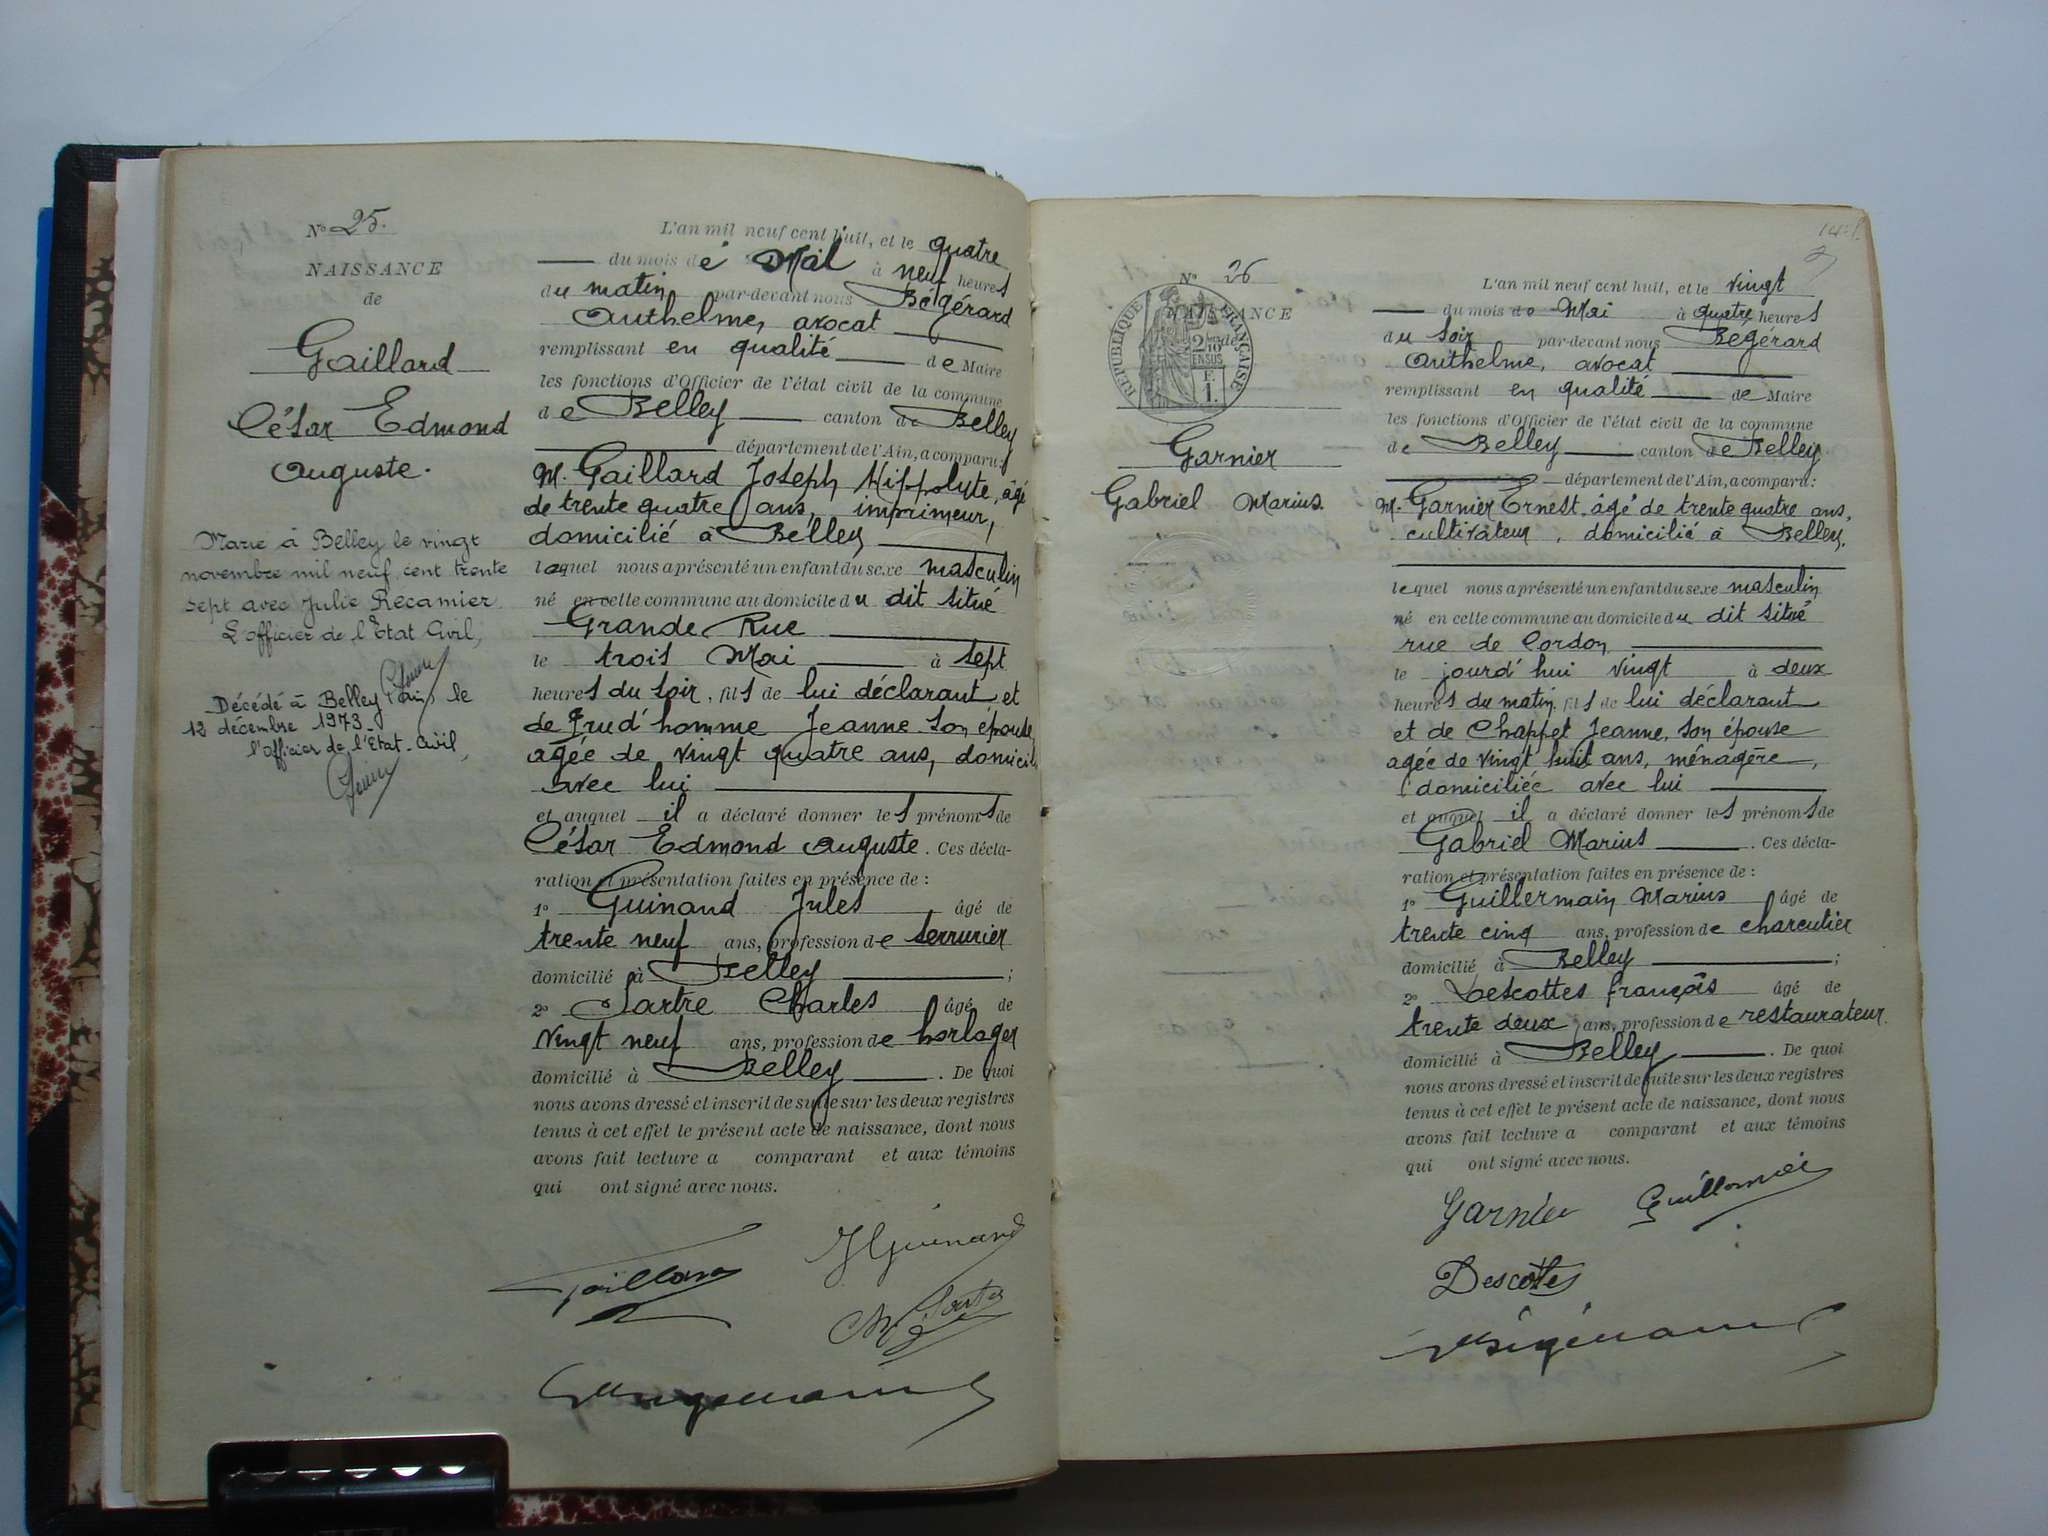 N° 25.
NAISSANCE
de
Gaillard
César Edmond
Auguste.
Marié à Belley le vingt
novembre mil neuf cent trente
sept avec Julie Récamier
L'officier de l'Etat Civil,
Décédé à Belley (Ain) le
12 décembre 1973
l'officier de l'Etat-Civil,
L'an mil neuf cent huit, et le quatre
du mois de Mai à neuf heures
du matin par-devant nous Bégérard
Anthelme, avocat
remplissant en qualité de Maire
les fonctions d'Officier de l'état civil de la commune
de Belley canton de Belley
département de l'Ain, a comparu:
M. Gaillard Joseph Hippolyte, âgé
de trente quatre ans, imprimeur,
domicilié à Belley
lequel nous a présenté un enfant du sexe masculin
né en cette commune au domicile du dit situé
Grande Rue
le trois Mai à sept
heures du soir, fils de lui déclarant et
de Prud'homme Jeanne son épouse
agée de vingt quatre ans, domicil
avec lui
et auquel il a déclaré donner les prénoms de
César Edmond Auguste. Ces décla-
ration et présentation faites en présence de :
1° Guinand Jules âgé de
trente neuf ans, profession de serrurier
domicilié à Belley ;
2° Sartre Charles âgé de
vingt neuf ans, profession de horloger
domicilié à Belley . De quoi
nous avons dressé et inscrit de suite sur les deux registres
tenus à cet effet le présent acte de naissance, dont nous
avons fait lecture a comparant et aux témoins
qui ont signé avec nous.
Gaillard
JGuinand
N° 26
NAISSANCE
de
RÉPUBLIQUE FRANÇAISE
2/10 EN SUS
F.
1.
Garnier
Gabriel Marius.
L'an mil neuf cent huit, et le vingt
du mois de Mai à quatre heures
du soir par-devant nous Bégérard
Anthelme, avocat
remplissant en qualité de Maire
les fonctions d'Officier de l'état civil de la commune
de Belley canton de Belley
département de l'Ain, a comparu:
M. Garnier Ernest, âgé de trente quatre ans,
cultivateur, domicilié à Belley,
lequel nous a présenté un enfant du sexe masculin
né en cette commune au domicile du dit situé
rue de Cordon
le jourd'hui vingt à deux
heures du matin, fils de lui déclarant
et de Chappet Jeanne, son épouse
agée de vingt huit ans, ménagère,
domiciliée avec lui
et auquel il a déclaré donner les prénoms de
Gabriel Marius . Ces décla-
ration et présentation faites en présence de :
1° Guillermain Marius âgé de
trente cinq ans, profession de charcutier
domicilié à Belley ;
2° Descottes françois âgé de
trente deux ans, profession de restaurateur
domicilié à Belley . De quoi
nous avons dressé et inscrit de suite sur les deux registres
tenus à cet effet le présent acte de naissance, dont nous
avons fait lecture a comparant et aux témoins
qui ont signé avec nous.
Garnier
Descotes